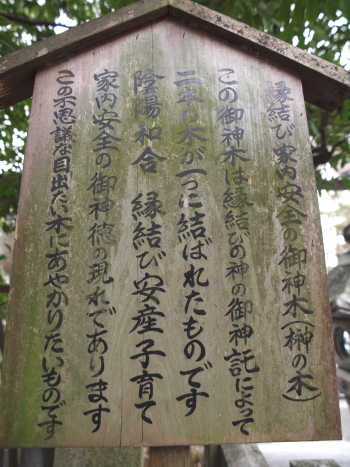 縁結び家内安全の御神木(榊の木)
この御神木は縁結びの神の御神託によって
二本の木が一つに結ばれたものです
陰陽和合 縁結び安産子育て
家内安全の御神徳の現れであります
この不思議な目出たい木にあやかりたいものです